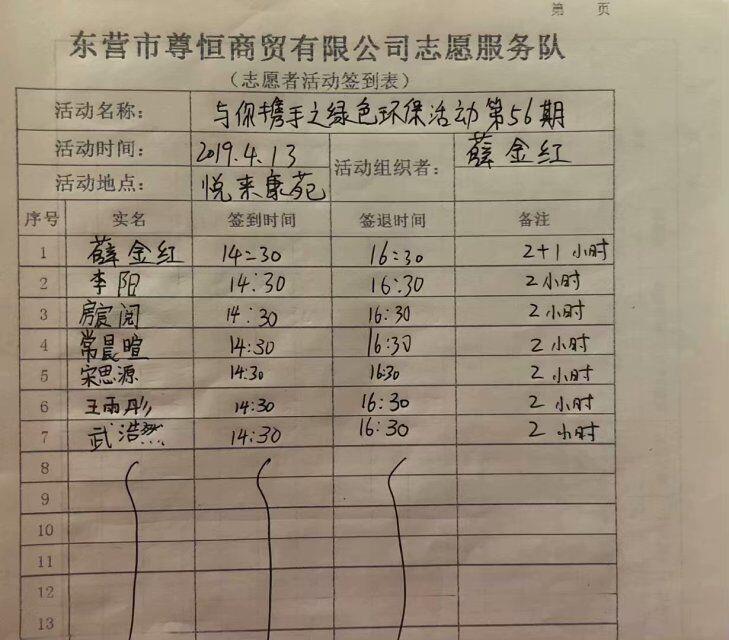 第 页
东营市尊恒商贸有限公司志愿服务队
（志愿者活动签到表）
活动名称： 与你携手之绿色环保活动第56期
活动时间： 2019.4.13 活动组织者： 薛金红
活动地点： 悦来康苑
序号 实名 签到时间 签退时间 备注
1 薛金红 14:30 16:30 2+1小时
2 李阳 14:30 16:30 2小时
3 房宸阅 14:30 16:30 2小时
4 常晨暄 14:30 16:30 2小时
5 宋思源 14:30 16:30 2小时
6 王雨彤 14:30 16:30 2小时
7 武浩然 14:30 16:30 2小时
8
9
10
11
12
13